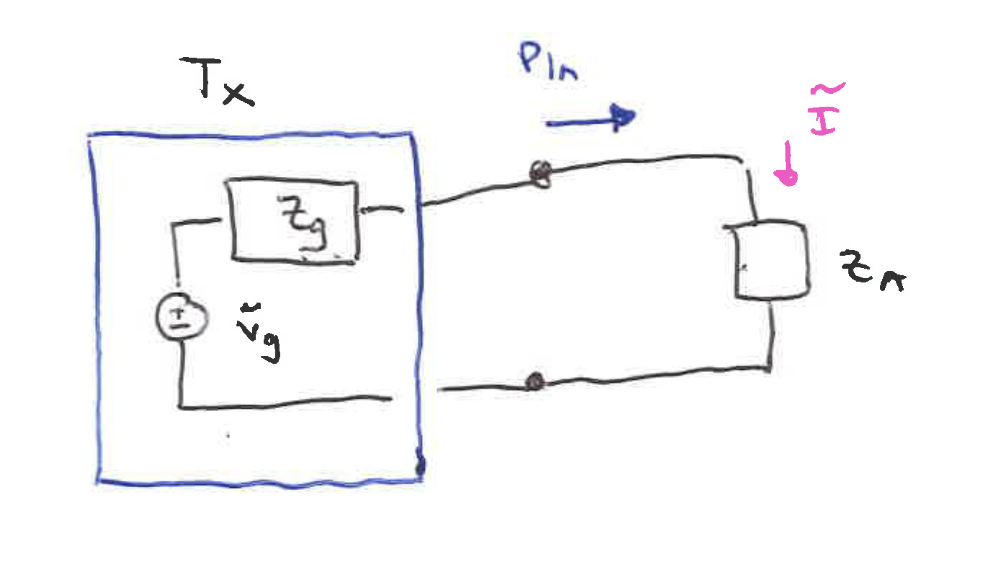 Tx
Pin
Ĩ
Zg
ṽg
ZA